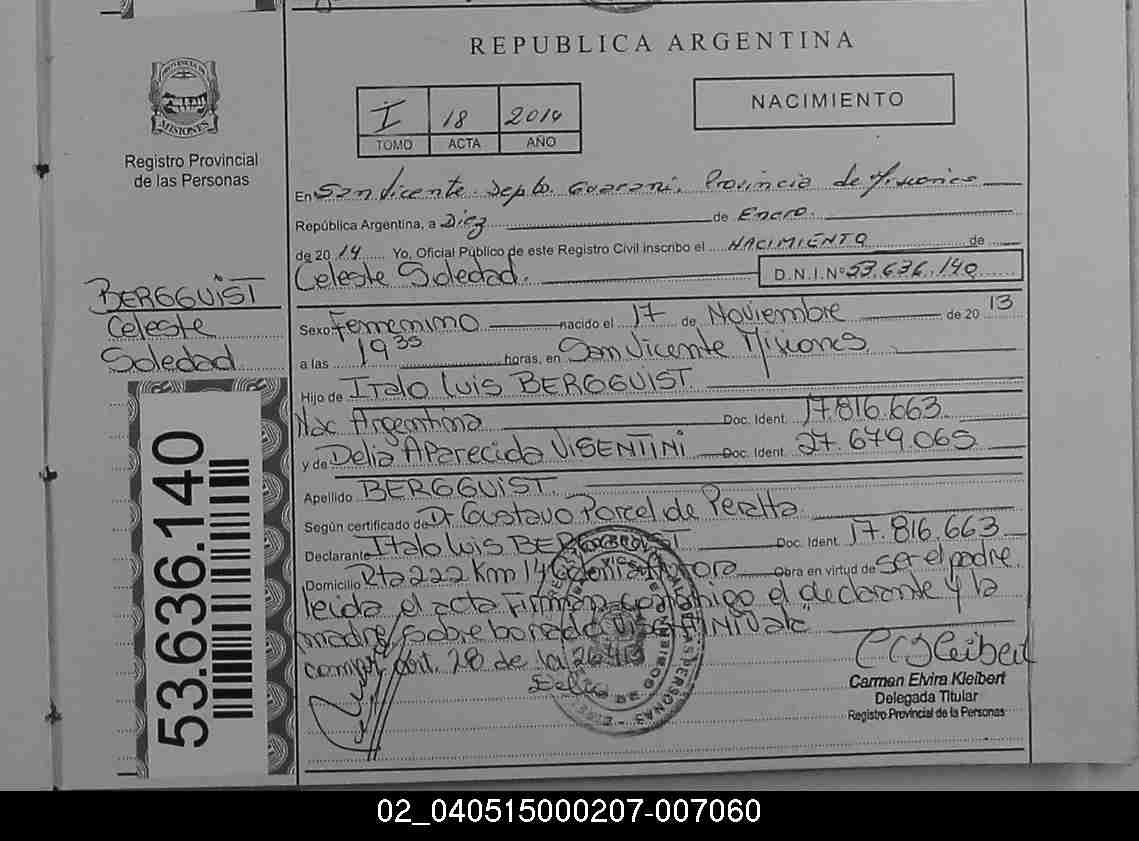 REPUBLICA ARGENTINA
PROVINCIA DE
MISIONES
Registro Provincial
de las Personas
I 18 2014
TOMO ACTA AÑO
NACIMIENTO
En San Vicente Depto. Guarani. Provincia de Misiones
República Argentina, a Diez de Enero.
de 2014 Yo, Oficial Público de este Registro Civil inscribo el NACIMIENTO de
Celeste Soledad. D.N.I.Nº 53.636.140
BERGGUIST
Celeste
Soledad
53.636.140
Sexo: Femenino nacido el 17 de Noviembre de 20 13
a las 19 35 horas, en San Vicente Misiones
Hijo de Italo Luis BERGGUIST
Nac Argentina Doc. Ident. 17.816.663
y de Delia Aparecida VISENTINI Doc. Ident. 27.679.065
Apellido BERGGUIST
Según certificado de Dr Gustavo Porcel de Peralta
Declarante Italo Luis Doc. Ident. 17.816.663
Domicilio Rta 222 Km 14 Colonia Aurora Obra en virtud de ser el padre
leida el acta Firman conmigo el declarante y la
madre sobre borrado VISENTINI Vale
art. 28 de la 26413
Delia
Carmen Elvira Kleibert
Delegada Titular
Registro Provincial de la Personas
02_040515000207-007060